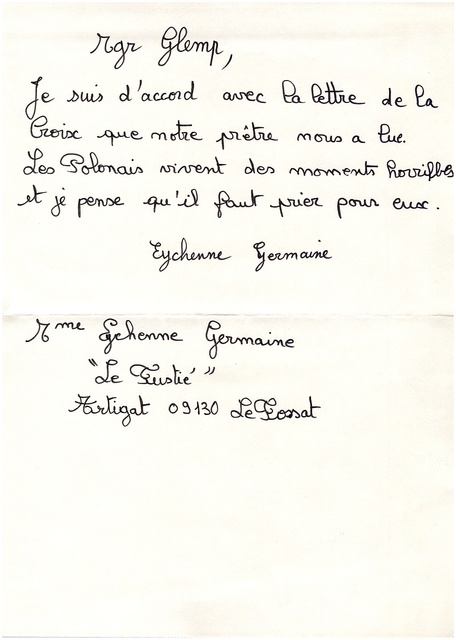 Mgr Glemp,
Je suis d'accord avec la lettre de la
Croix que notre prêtre nous a lue.
Les Polonais vivent des moments horribles
et je pense qu'il faut prier pour eux.
Eychenne Germaine
Mme Eychenne Germaine
"Le Fustié"
Artigat 09130 Le Fossat